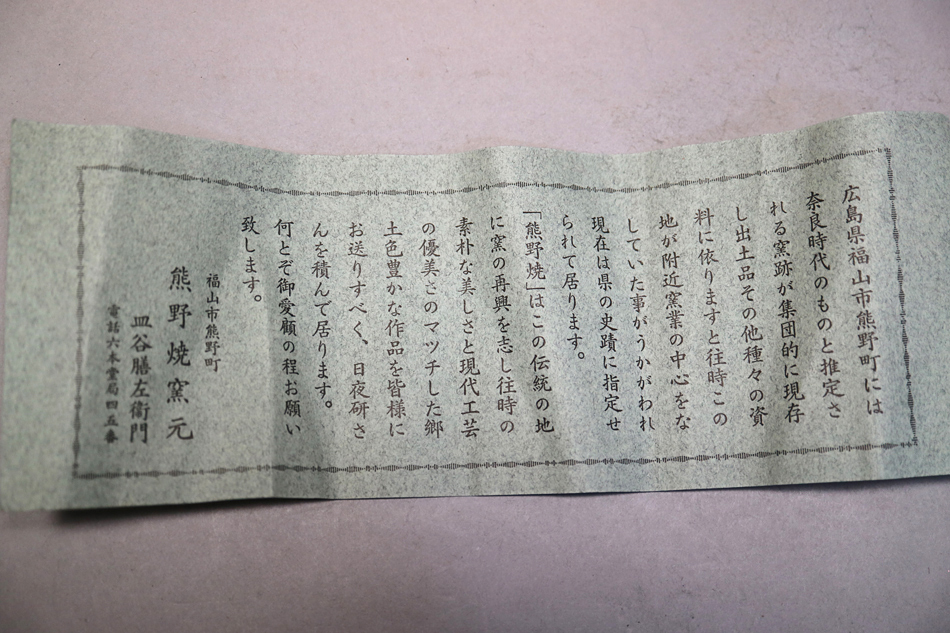 広島県福山市熊野町には
奈良時代のものと推定さ
れる窯跡が集団的に現存
し出土品その他種々の資
料に依りますと往時この
地が附近窯業の中心をな
していた事がうかがわれ
現在は県の史蹟に指定せ
られて居ります。
「熊野焼」はこの伝統の地
に窯の再興を志し往時の
素朴な美しさと現代工芸
の優美さのマツチした郷
土色豊かな作品を皆様に
お送りすべく、日夜研さ
んを積んで居ります。
何とぞ御愛顧の程お願い
致します。
福山市熊野町
熊野焼窯元
皿谷膳左衛門
電話六本堂局四五番